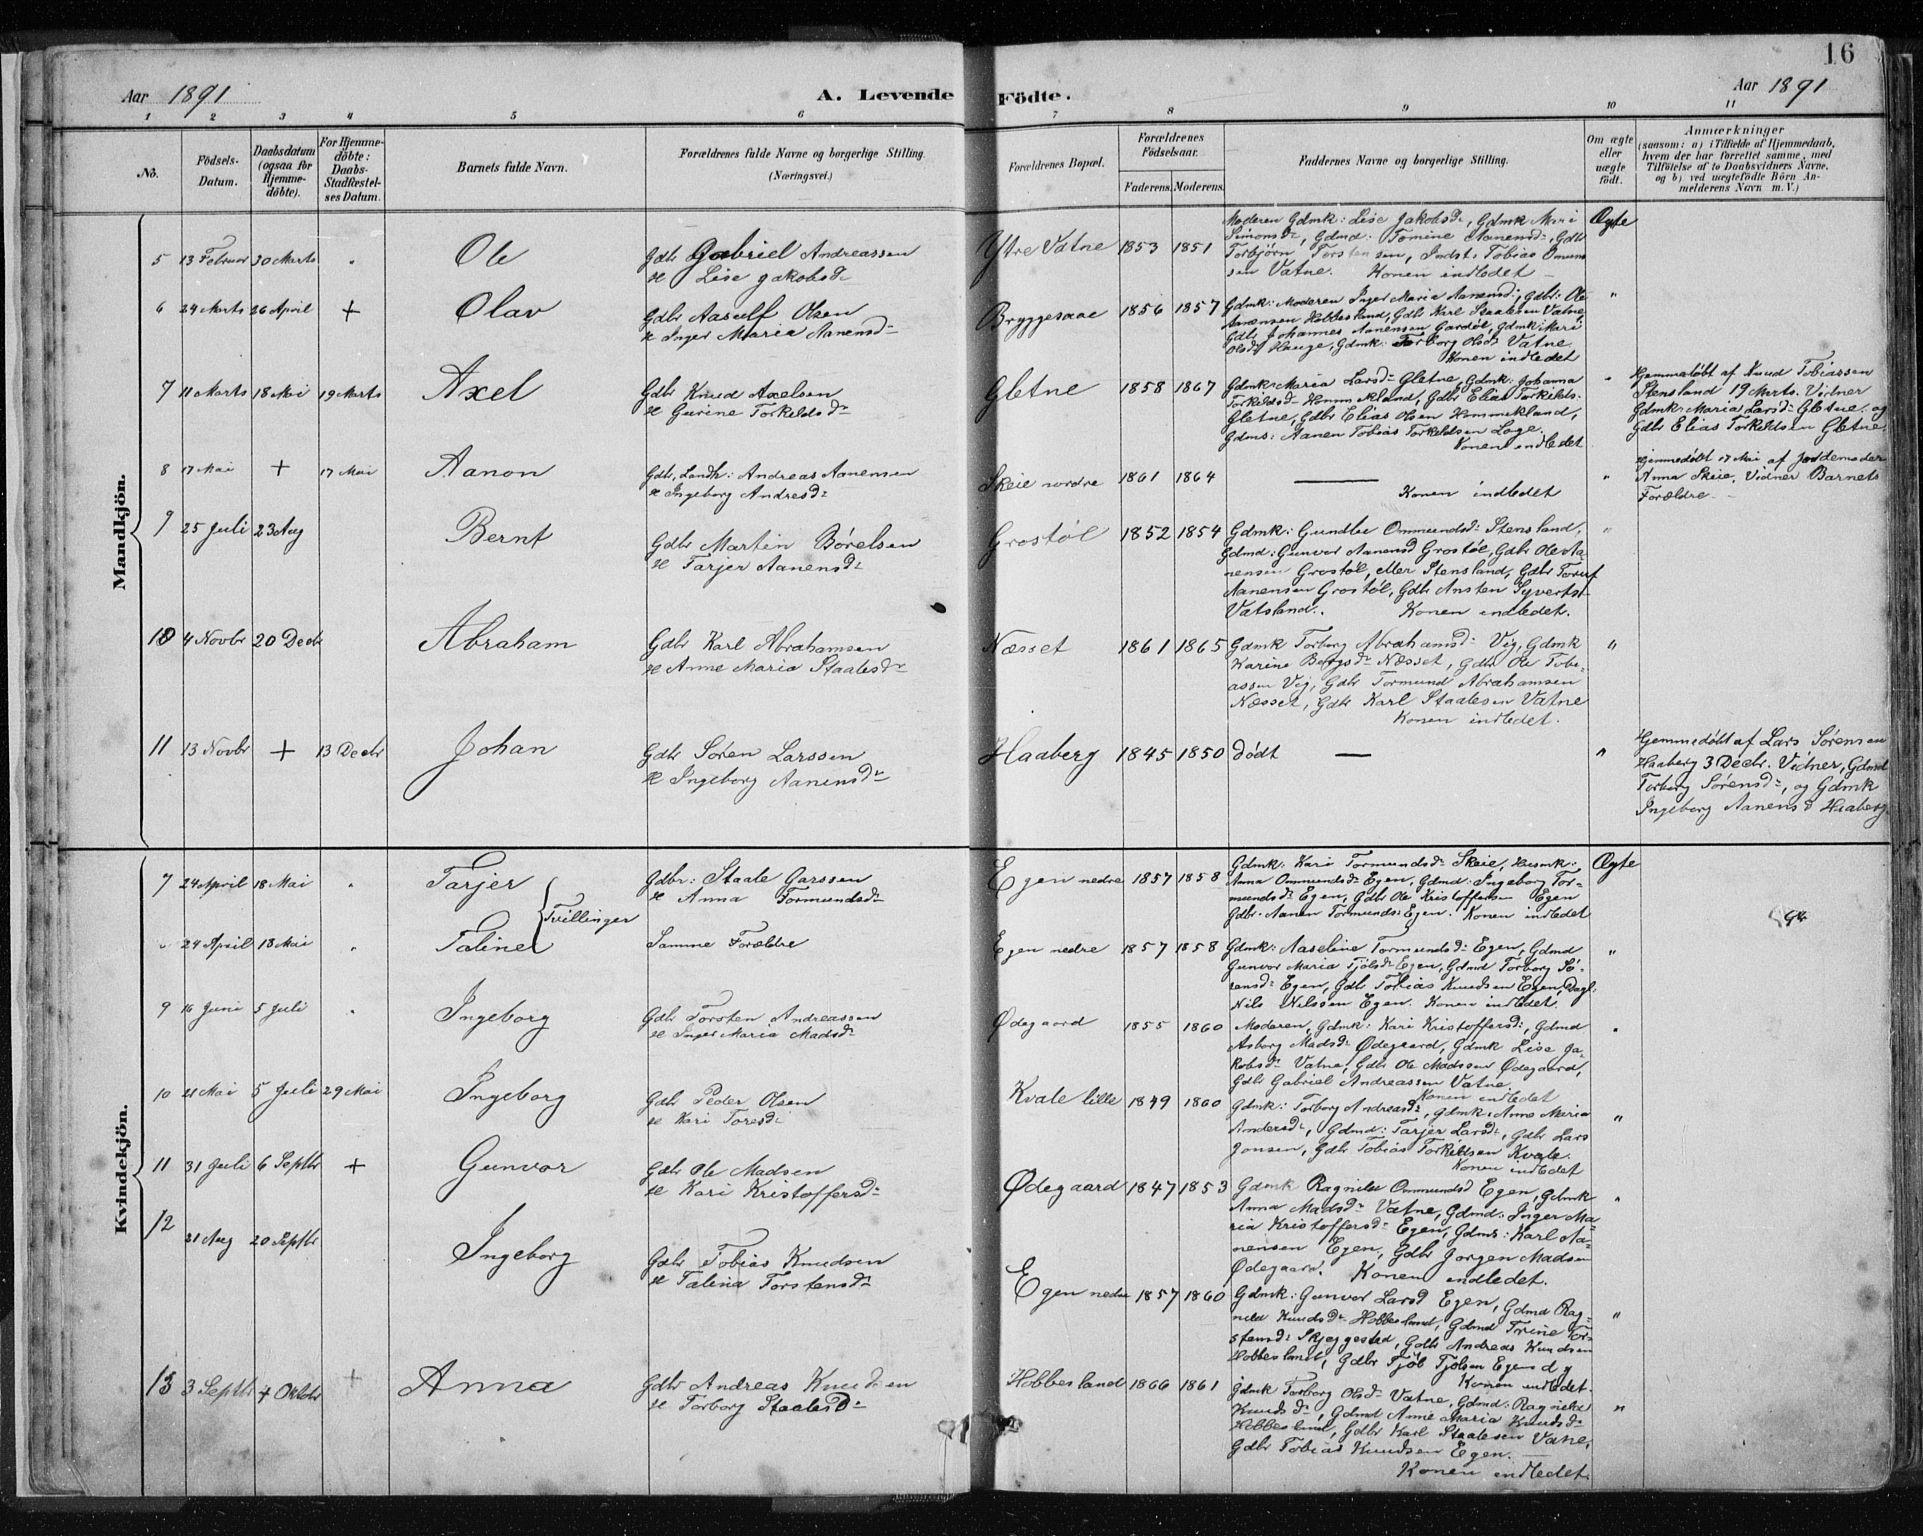 16
Aar 1891
A. Levende Födte.
Aar 1891
1 2 3 4 5 6 7 8 9 10 11
No.
Födsels-Datum.
Daabsdatum (ogsaa for Hjemmedöbte).
For Hjemmedöbte: Daabs-Stadfæstelses Datum.
Barnets fulde Navn.
Forældrenes fulde Navne og borgerlige Stilling. (Næringsvei.)
Forældrenes Bopæl.
Forældrenes Födselsaar.
Faderens. Moderens.
Faddernes Navne og borgerlige Stilling.
Om ægte eller uægte födt.
Anmærkninger
(saasom: a) i Tilfælde af Hjemmedaab, hvem der har forrettet samme, med Tilföielse af to Daabsvidners Navne, og b) ved uægtefödte Börn Anmelderens Navn m. V.)
Mandkjön.
5 13 Februar 30 Marts " Ole
Gdbr Gabriel Andreassen
& Lise Jakobsd:
Ytre Vatne 1853 1851
Moderen Gdmk: Lise Jakobsd:, Gdmk Mari
Simonsd:, Gdmd: Tomine Aanensd:, Gdbr
Torbjörn Torstensen, Indst: Tobias Omund
sen Vatne. Konen indledet
Ægte
6 24 Marts 26 April + Olav
Gdbr Aasulf Olsen
& Inger Maria Aanensd:
Bryggesaae 1856 1857
Gdmk: Moderen Inger Maria Aanensd:, Gdbr: Ole
Aanensen Hobbesland, Gdbr Karl Staalesen Vatne,
Gdbr Johannes Aanensen Gardöl, Gdmk: Mari
Olsd: Hauge, Gdmk: Torborg Olsd: Vatne.
Konen indledet
"
7 11 Marts 18 Mai 19 Marts Axel
Gdbr Knud Axelsen
& Gurine Torkeldsd:
Gletne 1858 1867
Gdmk: Maria Larsd: Gletne, Gdmk: Johanna
Torkildsd: Hommekland, Gdbr Elias Torkilds:
Gletne, Gdbr Elias Olsen Hommekland,
Gdms: Aanen Tobias Torkeldsen Loge.
Konen indledet
"
Hjemmedöbt af Knud Tobiassen
Stensland 19 Marts. Vidner
Gdmk: Maria Larsd: Gletne. og
Gdbr Elias Torkeldsen Gletne.
8 17 Mai + 17 Mai Aanon
Gdbr, Landh: Andreas Aanensen
& Ingeborg Andresd:
Skeie nordre 1861 1864
Konen indledet
"
Hjemmedöbt 17 Mai af Jordemoder
Anna Skeie. Vidner Barnets
Forældre
9 25 Juli 23 Aug Bernt
Gdbr Martin Börelsen
& Tarjer Aanensd:
Grostöl 1852 1854
Gdmk: Gundlee Ommundsd: Stensland,
Gdmd: Gunvor Aanensd Grostöl, Gdbr Ole Aa-
nensen Grostöl, eller Stensland, Gdbr Toruf
Aanensen Grostöl, Gdbr Ansten Syverts:
Vatsland. Konen indledet.
"
10 4 Novbr 20 Decbr Abraham
Gdbr Karl Abrahamsen
& Anne Maria Staalesd:
Næsset 1861 1865
Gdmk Torborg Abrahamsd: Vig, Gdmk
Karine Bergsd: Næsset, Gdbr Ole Tobi-
assen Vig, Gdbr Tormund Abrahamsen
Næsset, Gdbr Karl Staalesen Vatne
Konen indledet.
"
11 13 Novbr + 13 Decbr Johan
Gdbr Sören Larssen
& Ingeborg Aanensd:
Haaberg 1845 1850
dödt —
"
Hjemmedöbt af Lars Sörensen
Haaberg 3 Decbr. Vidner, Gdmd
Torborg Sörensd:, og Gdmk
Ingeborg Aanensd Haaberg.
Kvindekjön.
7 24 April 18 Mai " Tarjer
Tvillinger
Gdbr: Staale Garssen
& Anna Tormundsd:
Egen nedre 1857 1858
Gdmk: Kari Tormundsd: Skeie, Husmk:
Anna Ommundsd: Egen, Gdmd: Ingeborg Tor-
mundsd: Egen, Gdbr Ole Kristoffersen Egen
Gdbr. Aanen Tormunds: Egen. Konen indledet
Ægte
24 April 18 Mai " Taline
Samme Forældre
Egen nedre 1857 1858
Gdmk: Aaseline Tormundsd: Egen, Gdmd
Gunvor Maria Tjölsd: Egen, Gdmd Torborg Sö-
rensd: Egen, Gdbr Tobias Knudsen Egen, Dagl:
Nils Nilssen Egen. Konen indledet
"
9 16 Juni 5 Juli " Ingeborg
Gdbr Torsten Andreassen
& Inger Maria Madsd:
Ødegaard 1855 1860
Moderen, Gdmk: Kari Kristoffersd:, Gdmd
Asborg Madsd: Ødegaard, Gdmk Lise Ja-
kobsd: Vatne, Gdbr Ole Madssen Ødegaard,
Gdbr Gabriel Andreassen Vatne.
Konen indledet
"
10 21 Mai 5 Juli 29 Mai Ingeborg
Gdbr Peder Olsen
& Kari Toresd:
Kvale lille 1849 1860
Gdmk: Torborg Andreasd:, Gdmk: Anne Maria
Andersd:, Gdmd: Tarjer Larsd:, Gdbr Lars
Jonsen, Gdbr Tobias Torkildsen Kvale.
Konen indledet
"
11 31 Juli 6 Septbr + Gunvor
Gdbr Ole Madsen
& Kari Kristoffersd:
Ødegaard 1847 1853
Gdmk Ragnild Ommundsd Egen, Gdmk
Anna Madsd: Vatne, Gdmd: Inger Ma-
ria Kristoffersd: Egen, Gdms: Karl Aa-
nensen Egen, Gdbr Jörgen Madsen
Ødegaard. Konen indledet.
"
12 21 Aug 20 Septbr Ingeborg
Gdbr Tobias Knudsen
& Talina Torstensd:
Egen nedre 1857 1860
Gdmk: Gunvor Larsd Egen, Gdmd Rag-
nild Knudsd: Hobbesland, Gdmd Trine Tor-
stensd: Skjeggestad, Gdbr Andreas Knudsen
Hobbesland, Gdbr Tjöl Tjölsen Egen
Konen indledet.
"
13 3 Septbr 4 Oktbr + Anna
Gdbr Andreas Knudsen
& Torborg Staalesd:
Hobbesland 1866 1861
Gdmk Torborg Olsd: Vatne, Gdmd: Ragnild
Knudsd:, Gdmd Anne Maria Knudsd:
Hobbesland, Gdbr Karl Staalesen Vatne,
Gdbr Tobias Knudsen Egen.
Konen indledet.
"